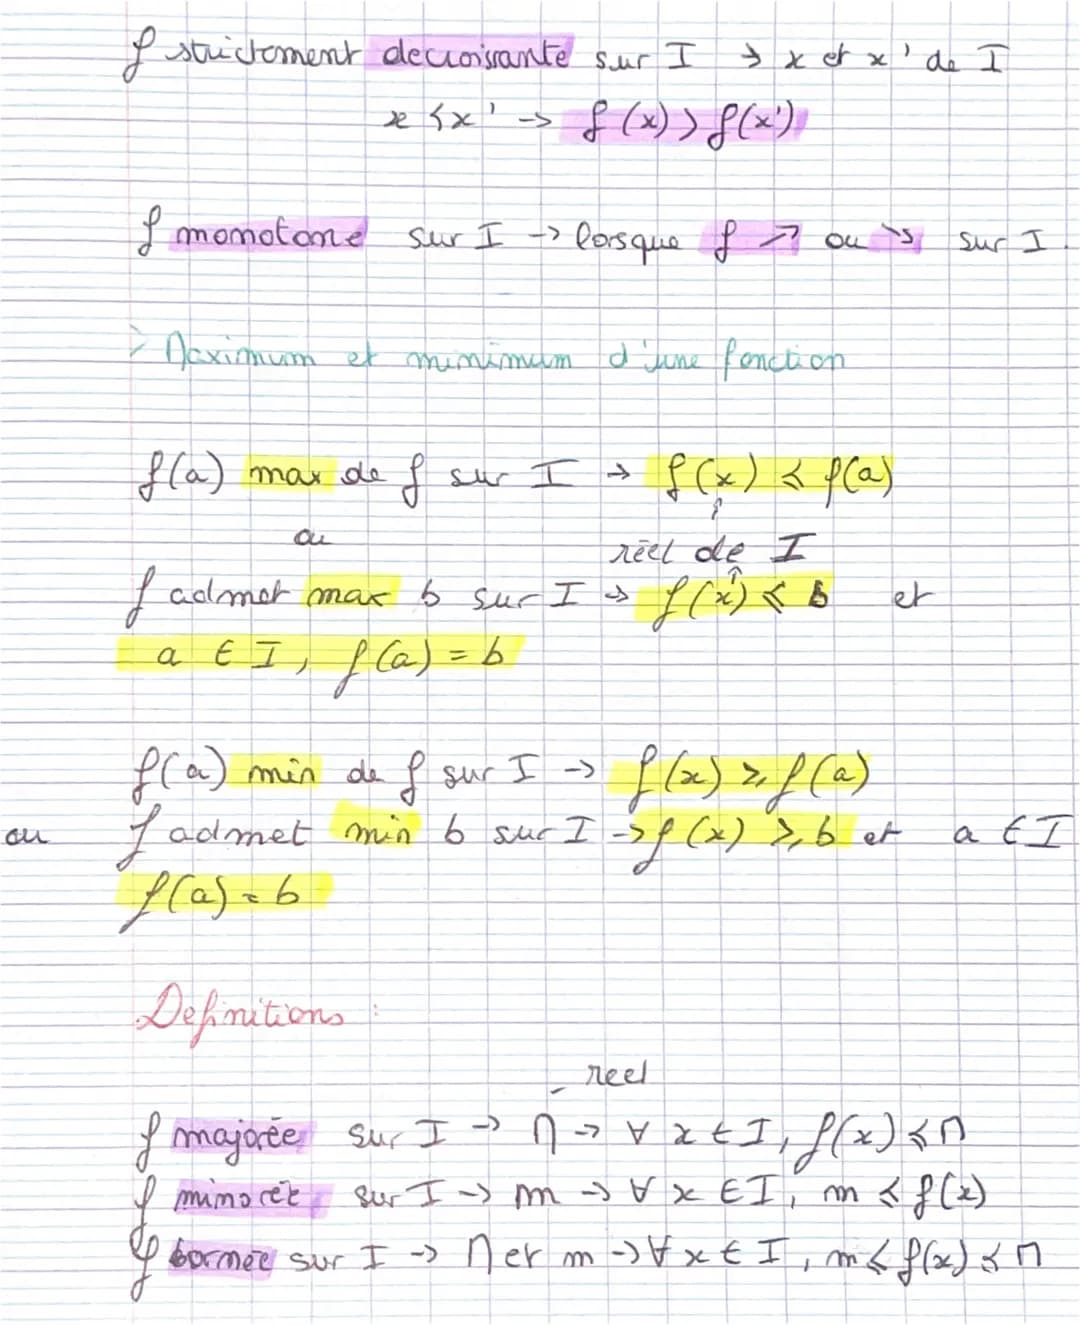 f strictement decroissante sur I → x et x' de I
x < x' → f(x) > f(x')
f monotone sur I → lorsque f ↗ ou ↘ sur I.
> Maximum et minimum d'une fonction
f(a) max de f sur I → f(x) ⩽ f(a)
ou
réel de I
f admet max b sur I → f(x) ⩽ b et
a ∈ I, f(a) = b
f(a) min de f sur I → f(x) ⩾ f(a)
ou f admet min b sur I → f(x) ⩾ b et a ∈ I
f(a) = b
Definitions :
reel
f majorée sur I → M → ∀ x ∈ I, f(x) ⩽ M
f minorée sur I → m → ∀ x ∈ I, m ⩽ f(x)
f bornée sur I → M et m → ∀ x ∈ I, m ⩽ f(x) ⩽ M